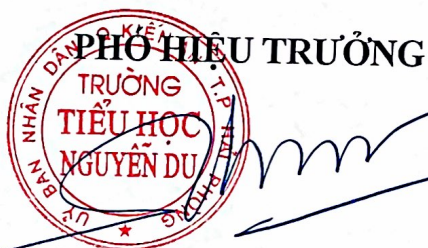 PHÓ HIỆU TRƯỞNG
ỦY BAN NHÂN DÂN Q. KIẾN AN T.P HẢI PHÒNG
TRƯỜNG
TIỂU HỌC
NGUYỄN DU